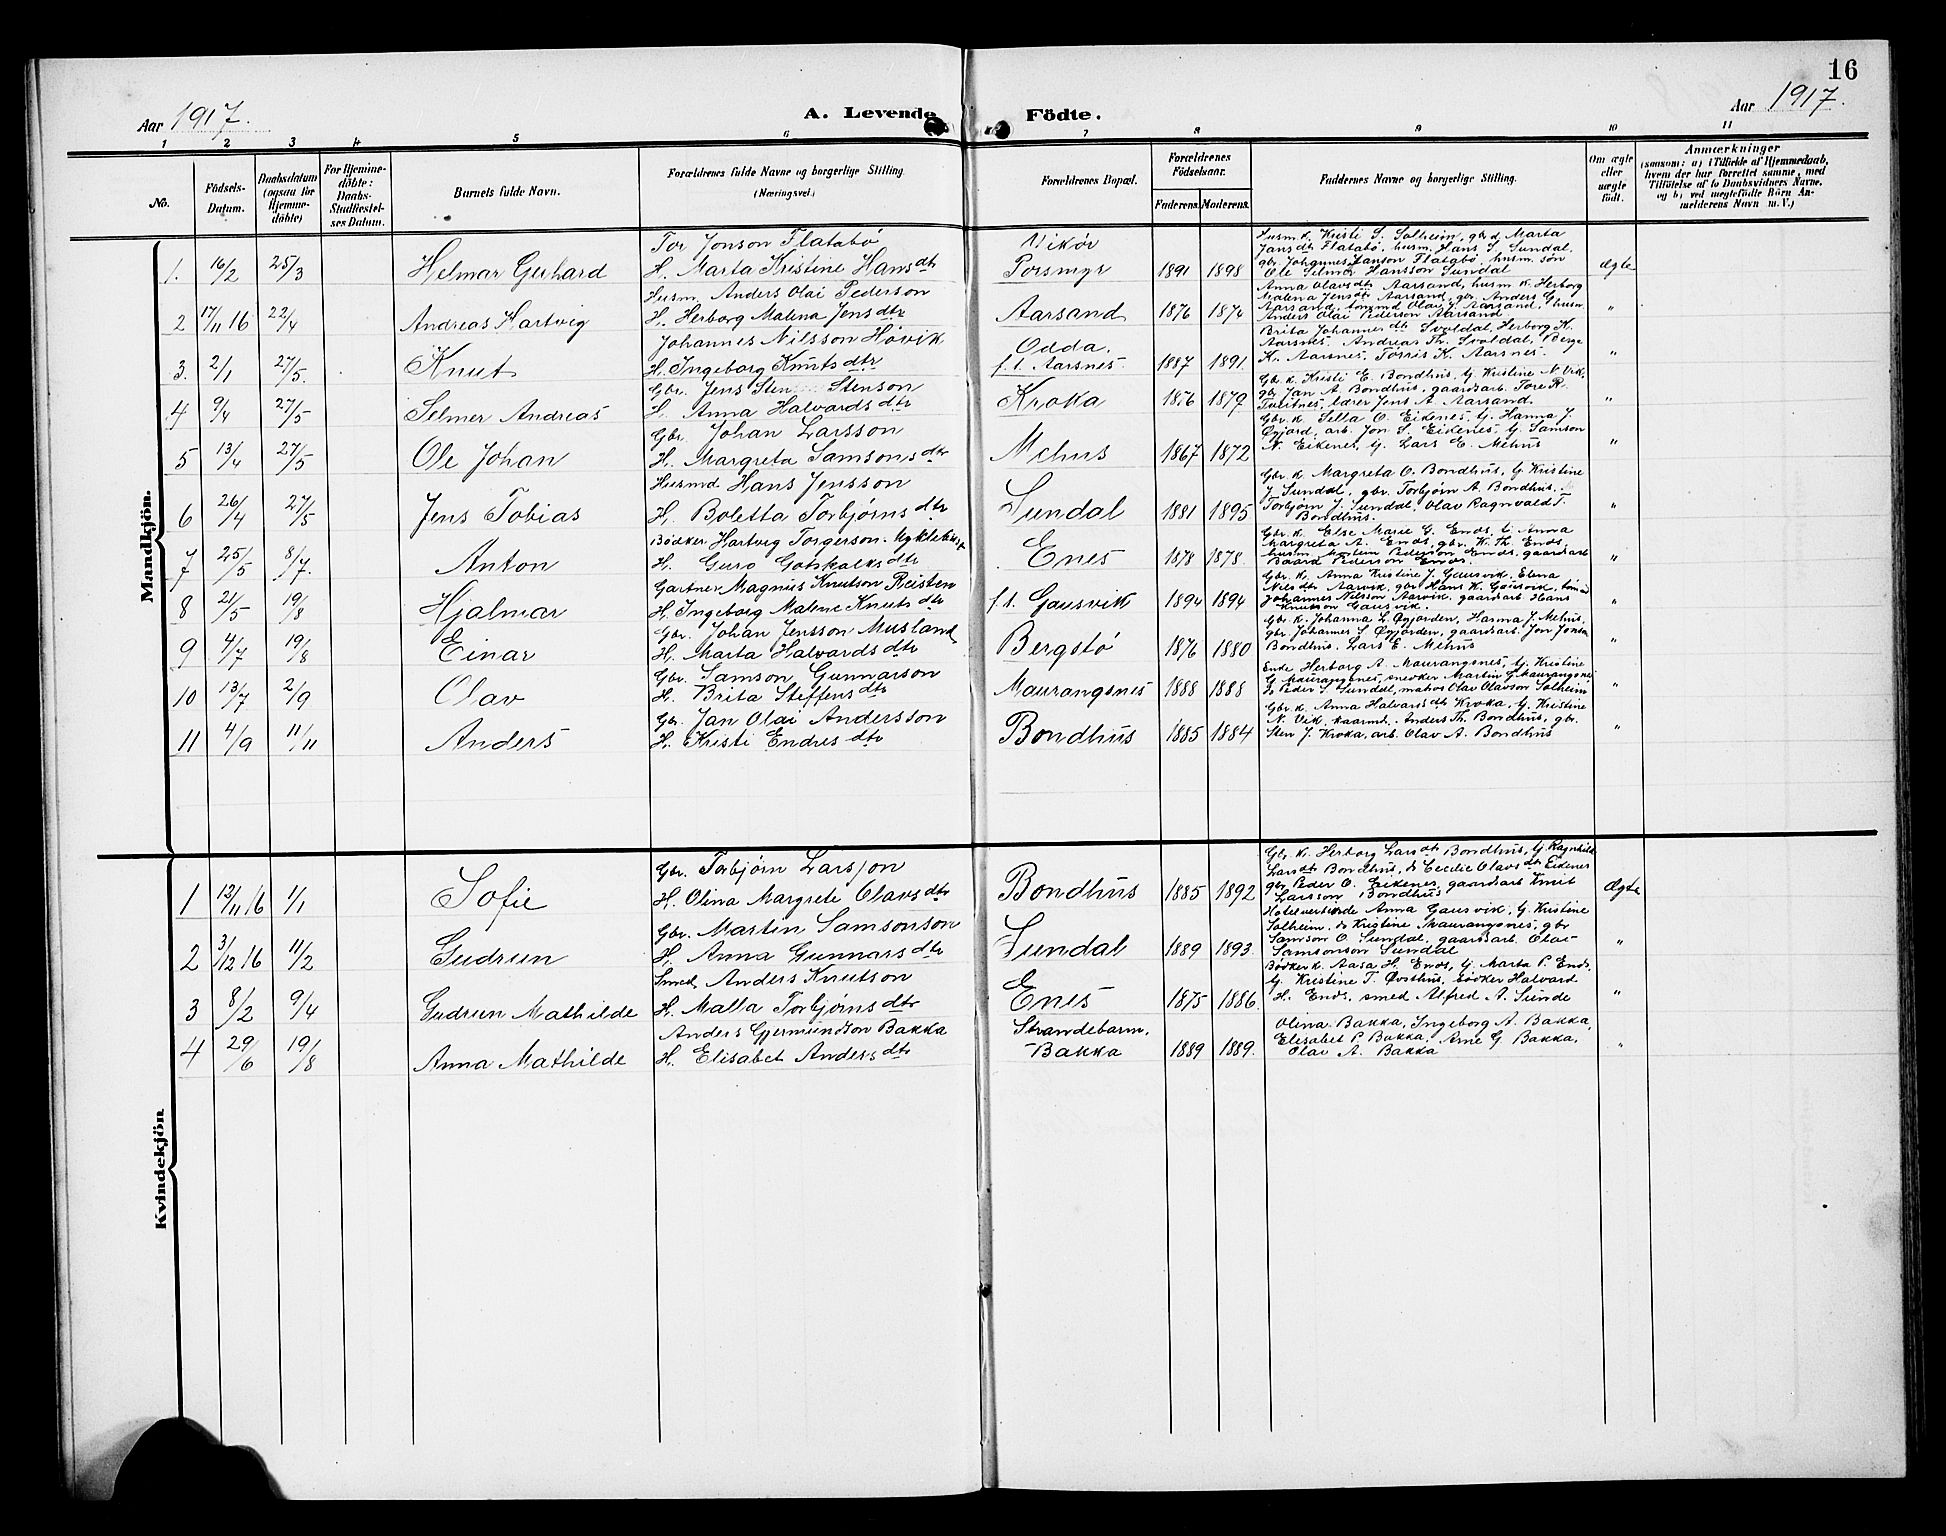 16
Aar 1917.
A. Levende Födte.
Aar 1917.
1 2 3 4 5 6 7 8 9 10 11
No.
Födsels-
Datum.
Daabsdatum
(ogsaa för
Hjemme-
döbte)
For Hjemme-
döbte:
Daabs-
Stadfæstel-
ses Datum.
Barnets fulde Navn.
Forældrenes fulde Navne og borgerlige Stilling.
(Næringsvei.)
Forældrenes Bopæl.
Forældrenes
Födselsaar.
Faderens. Moderens.
Faddernes Navne og borgerlige Stilling.
Om ægte
eller
uægte
födt.
Anmærkninger
(saasom: a) i Tilfælde af Hjemmedaab,
hvem der har forrettet samme, med
Tilföielse af to Daabsvidners Navne,
og b) ved uægtefödte Börn An-
melderens Navn m. V.)
Mandkjön.
1. 16/2 25/3 Helmar Gerhard
Tor Jonson Flatabø
H. Marta Kristine Hansdtr
Vikør
Porsmyr 1891 1898
Husm. k. Kristi S. Solheim, gbr d. Marta
Jansdtr Flatabø, husm. Hans S. Sundal,
gbr. Johannes Janson Flatabø, husm. søn
Ole Selmer Hansson Sundal
Ægte
2 17/11 16 22/4 Andreas Hartvig
Husm. Anders Olai Pederson
H. Herborg Malena Jensdtr
Aarsand 1876 1874
Anna Olavsdtr Aarsand, husm k. Herborg
Malena Jensdtr Aarsand, gbr. Anders G
Aarsand, Olav J. Aarsand, husm
Anders Olai Pederson Aarsand
"
3. 2/1 27/5. Knut
Johannes Nilsson Høvik
H. Ingeborg Knutsdtr
Odda.
f. t. Aarsnes. 1887 1891.
Brita Johannesdtr Svoldal, Herborg K.
Aarsnes, Andreas Th. Svoldal, Berge
K. Aarsnes, Torris K. Aarsnes.
"
4 9/4 27/5 Selmer Andreas
Gbr. Jens Sten Stenson
H. Anna Halvardsdtr
Kroka 1876 1879
Gbr. k. Kristi E. Bondhus, G. Kristine N. Vik,
gbr Jan A. Bondhus, gaardsarb. Tore R.
Tveitnes, lærer Jens A. Aarsand.
"
5 13/4 27/5 Ole Johan
Gbr. Johan Larsson
H. Margreta Samsonsdtr
Mehus 1867 1872
Gbr. k. Sella O. Eikenes, G. Hanna J.
Øyjord, arb. Jon S. Eikenes, G. Samson
N. Eikenes, G. Lars E. Mehus
"
6 26/4 27/5 Jens Tobias
Husmd. Hans Jensson
H. Boletta Torbjørnsdtr
Sundal 1881 1895
Gbr. k. Margreta O. Bondhus, G. Kristine
J. Sundal, gbr. Torbjørn A. Bondhus.
Torbjørn J. Sundal, Olav Ragnvald T.
Bondhus.
"
7 25/5 8/7. Anton
Bødker Hartvig Torgerson
H. Guro Gotskalksdtr
Enes 1878 1878.
Gbr. k. Else Marie G. Enes, G. Anna
Margreta A. Enes, gbr. K. Th. Enes,
husm. Mortein Pederson Enes, gaardsarb
Baard Pederson Enes.
"
8 21/5 19/8 Hjalmar
Gartner Magnus Knutson Reisten
H. Ingeborg Malene Knutsdtr
f. t. Gausvik 1894 1894
Gbr. k. Anna Kristine J. Gausvik, Elena
Nilsdtr Aarvik, gbr Hans K. Gausvik,
Johannes Nilsson Aarvik, gaardsarb. Hans
Knutson Gausvik.
"
9 4/7 19/8 Einar
Gbr. Johan Jensson Musland
H. Marta Halvardsdtr
Bergstø 1876 1880
Gbr. k. Johanna L. Øyjorden, Hanna J. Mehus,
gbr. Johannes S. Øyjorden, gaardsarb. Jon Jonson
Bondhus, Lars E. Mehus
"
10 13/7 2/9 Olav
Gbr. Samson Gunnarson
H. Brita Steffensdtr
Maurangsnes 1888 1888
Enke Herborg A. Maurangsnes, G. Kristine
G. Maurangsnes, snekker Martin G. Maurangsnes
Peder S. Sundal, matros Olav Olavson Solheim
"
11 4/9 11/11 Anders
Gbr. Jan Olai Andersson
H. Kristi Endresdtr
Bondhus 1885 1884
Gbr. k. Anna Halvarsdtr Kroka, G. Kristine
N. Vik, Anders Th. Bondhus, gbr.
Sten J. Kroka, arb. Olav A. Bondhus
"
Kvindekjön
1 12/11 16 1/1 Sofie
Gbr. Torbjørn Larsson
H. Olina Margrete Olavsdtr
Bondhus 1885 1892
Gbr. k. Herborg Larsdtr Bondhus, G. Ragnhild
Larsdtr Bondhus, Cecilie Olavsdtr Eikenes
gbr Peder O. Eikenes, gaardsarb Knut
Larsson Bondhus
Ægte
2 3/12 16 11/2 Gudrun
Gbr. Martin Samsonson
H. Anna Gunnarsdtr
Sundal 1889 1893.
Hotelvertinde Anna Gausvik, G. Kristine
Solheim. Kristine Maurangsnes, gbr
Samson O. Sundal, gaardsarb. Olai
Samsonson Sundal
"
3 8/2 9/4 Gudrun Mathilde
Smed Anders Knutson
H. Malla Torbjørnsdtr
Enes 1875 1886.
Bødker k. Aasa H. Enes, G. Marta P. Enes,
G. Kristine T. Øvsthus, bødker Halvard
H. Enes, smed Alfred A. Sunde
"
4 29/6 19/8 Anna Mathilde
Anders Gjermundson Bakka
H. Elisabet Andersdtr
Strandebarm.
Bakka 1889 1889.
Olina Bakka, Ingeborg A. Bakka,
Elisabet P. Bakka, Arne G. Bakka,
Olav A. Bakka
"